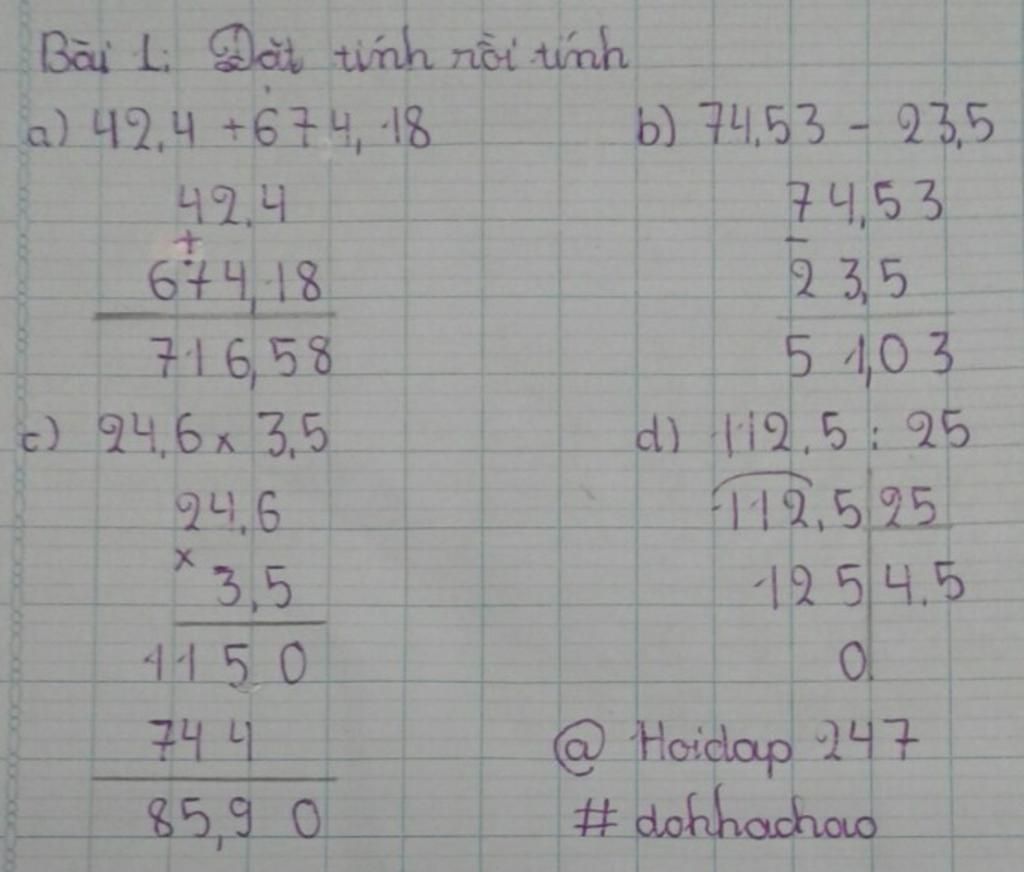 Bài 1: Đặt tính rồi tính
a) 42,4 + 674,18
b) 74,53 - 23,5
42,4
+
674,18
716,58
74,53
-
23,5
51,03
c) 24,6 x 3,5
d) 112,5 : 25
24,6
x
3,5
1150
744
85,90
112,5 25
125 4,5
0
@ Hoidap 247
# dohhachao